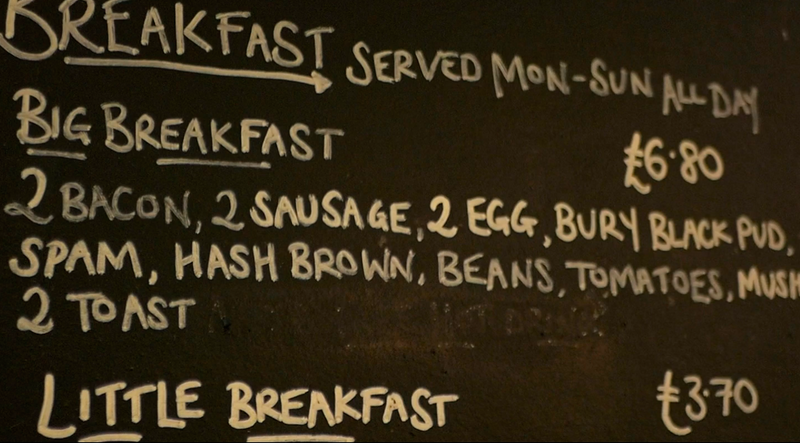 BREAKFAST SERVED MON-SUN ALL DAY
BIG BREAKFAST £6.80
2 BACON, 2 SAUSAGE, 2 EGG, BURY BLACK PUD,
SPAM, HASH BROWN, BEANS, TOMATOES, MUSH
2 TOAST
LITTLE BREAKFAST £3.70